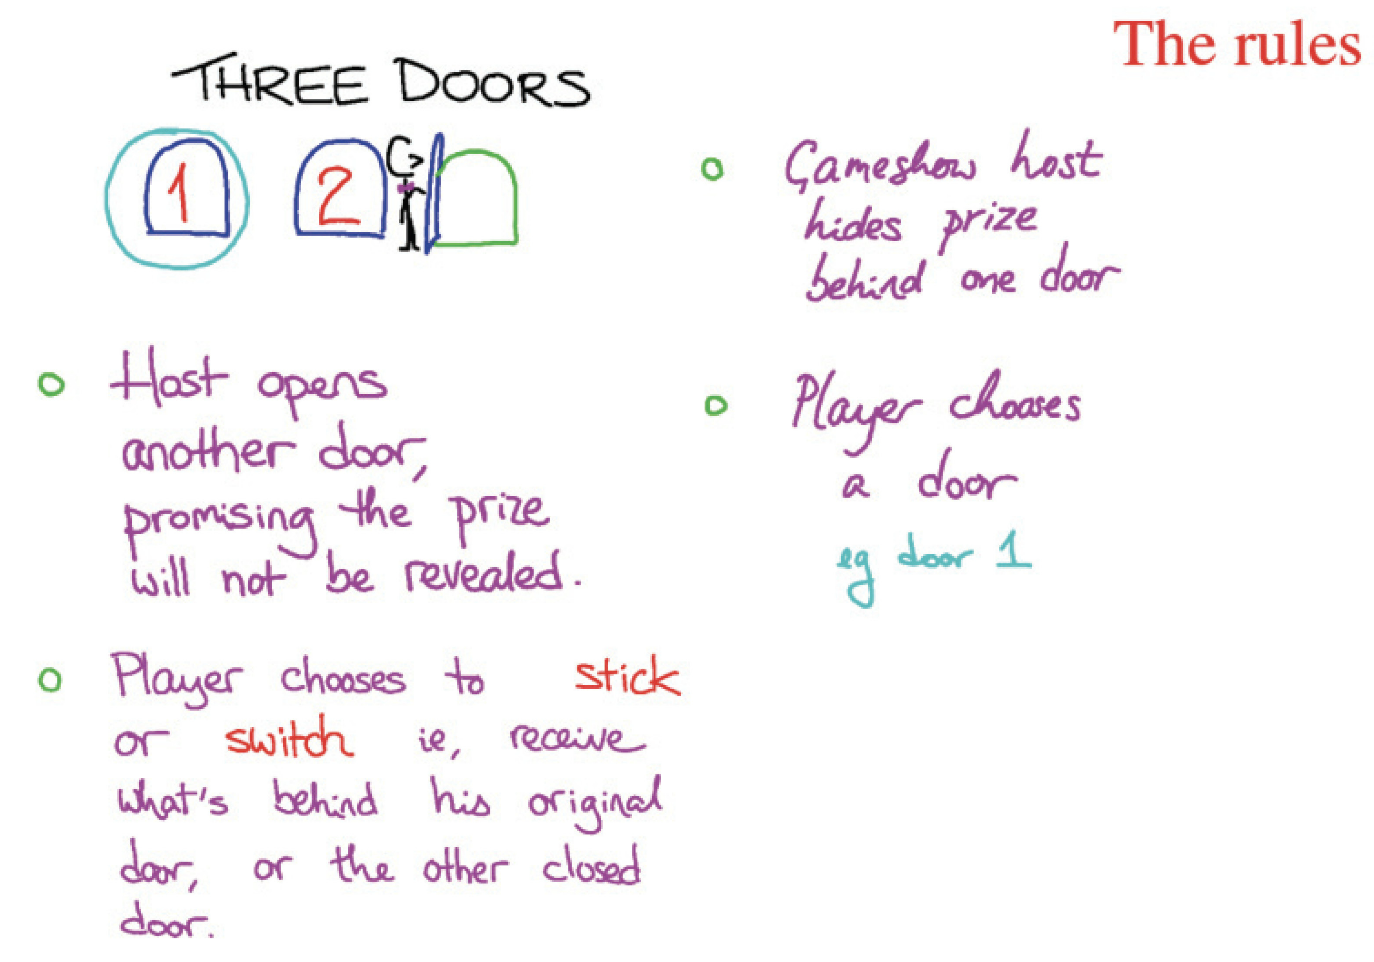 The rules
THREE DOORS
1 2
Gameshow host
hides prize
behind one door
Player chooses
a door
eg door 1
Host opens
another door,
promising the prize
will not be revealed.
Player chooses to stick
or switch ie, receive
what's behind his original
door, or the other closed
door.